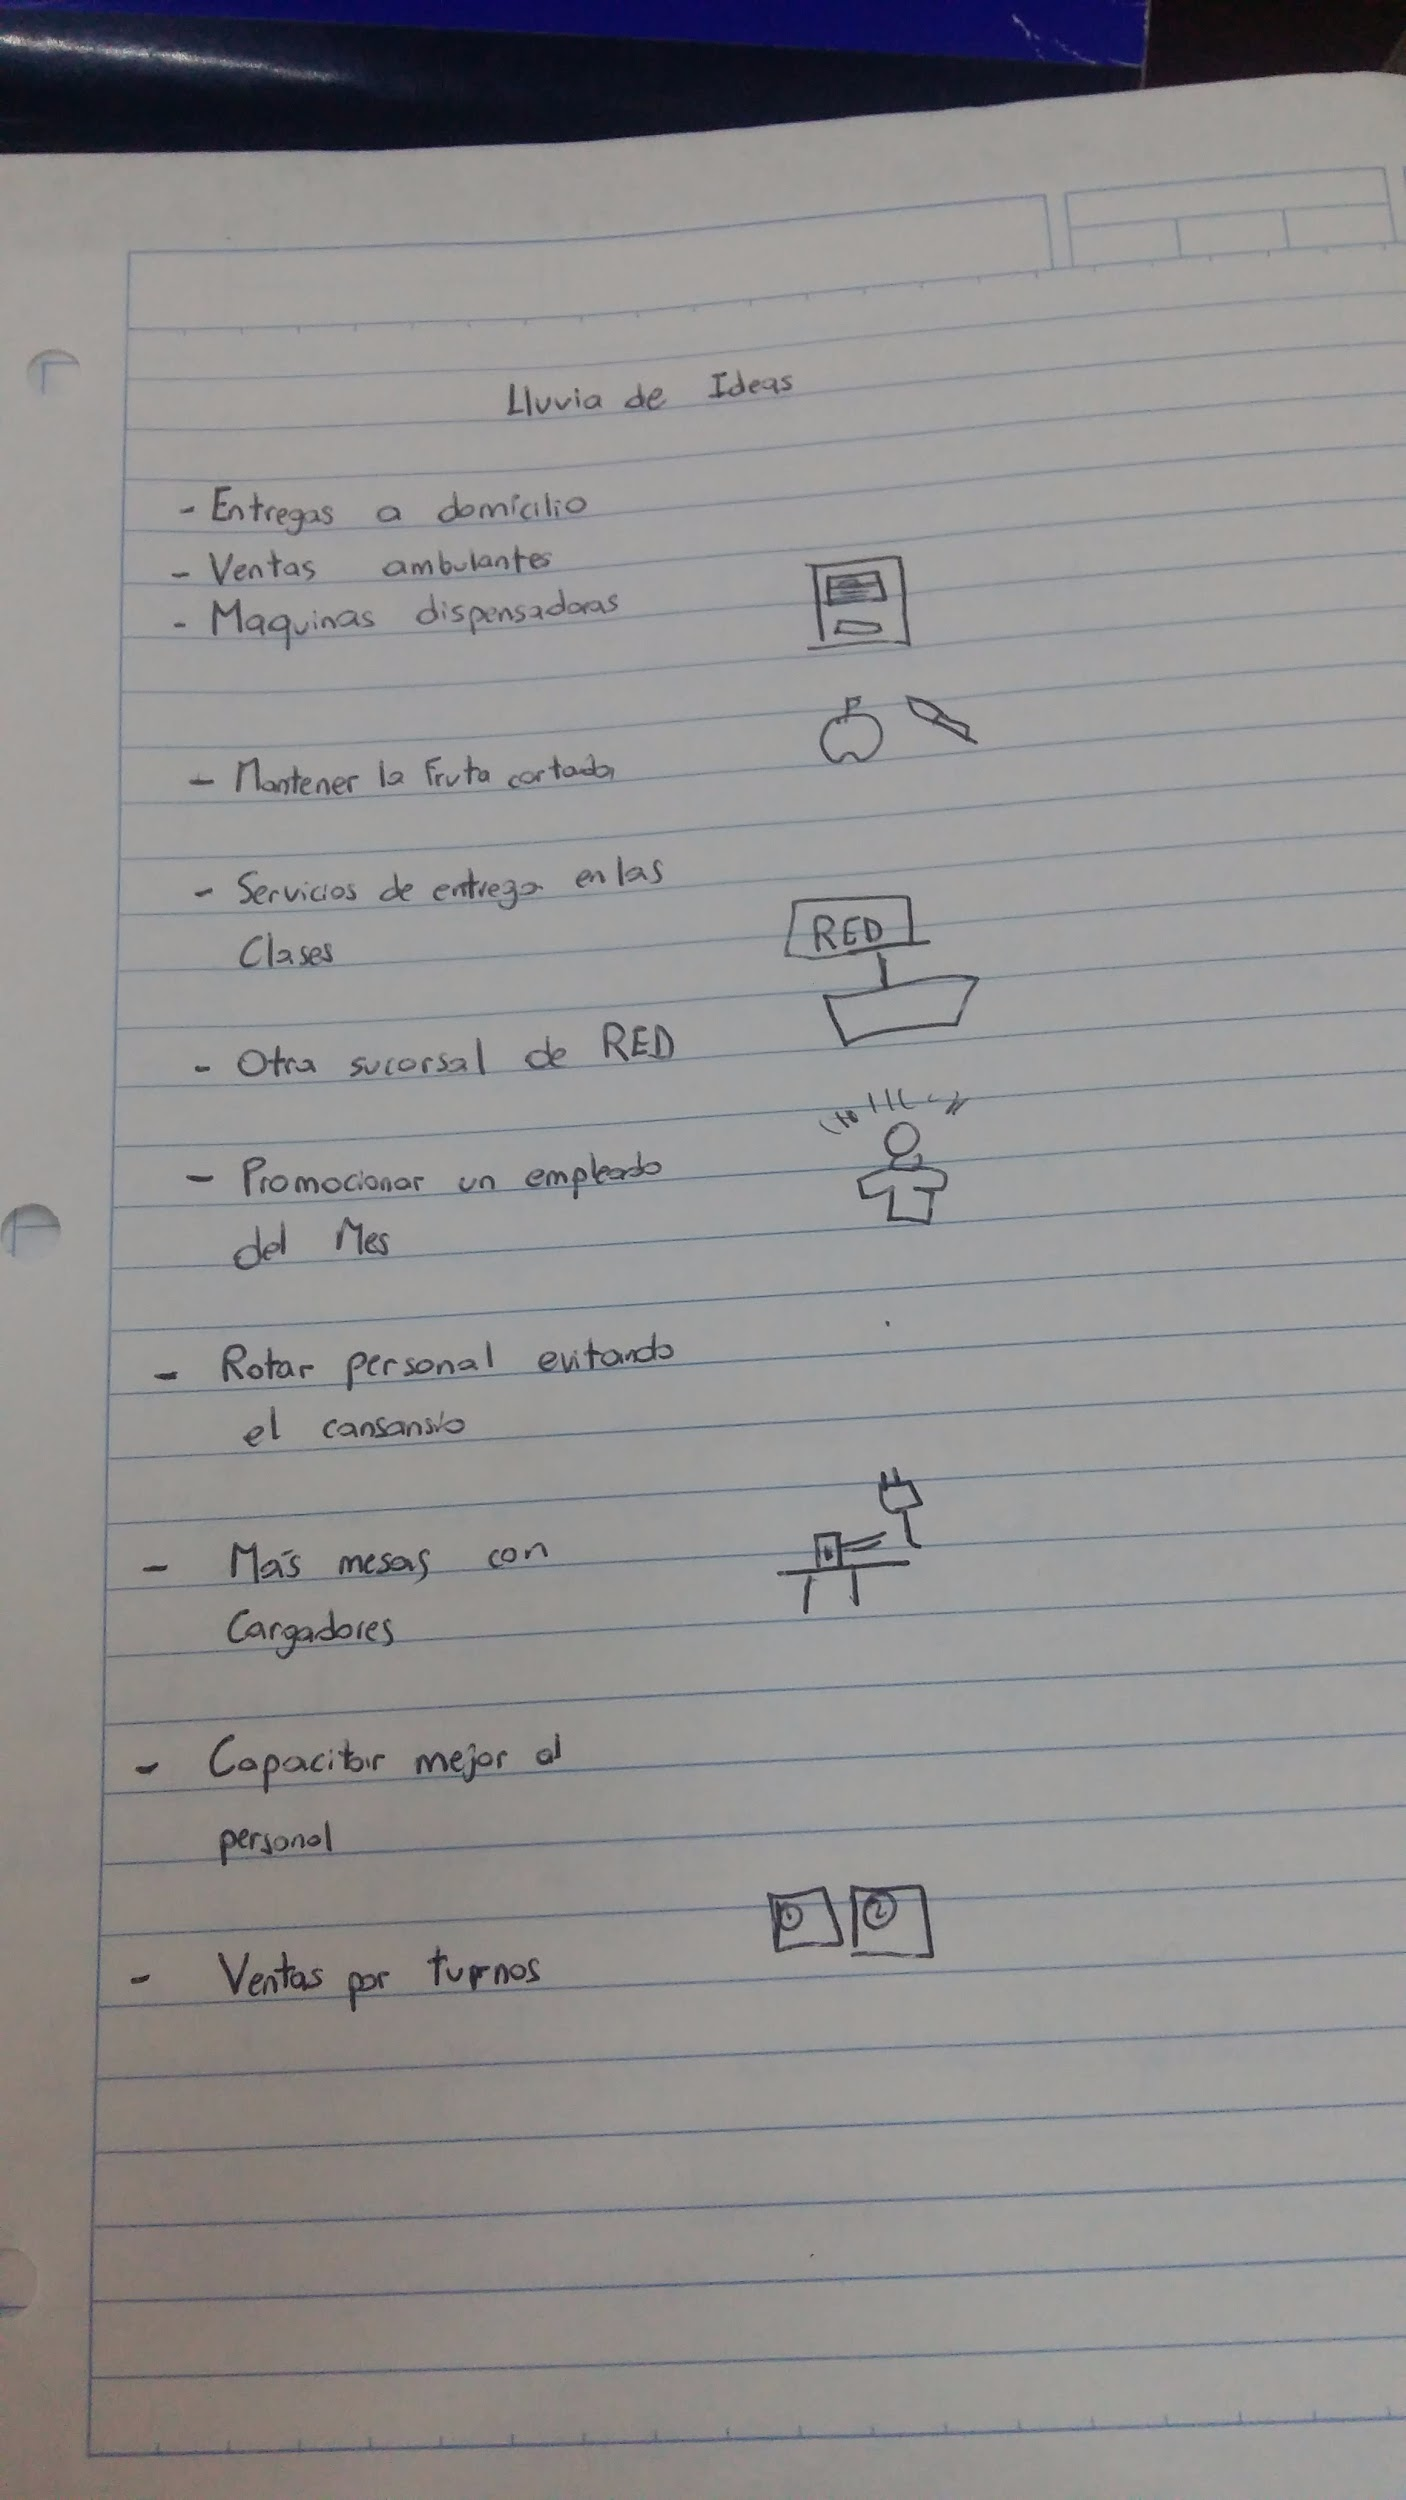 Lluvia de Ideas
- Entregas a domicilio
- Ventas ambulantes
- Maquinas dispensadoras
- Mantener la Fruta cortada
- Servicios de entrega en las
Clases
RED
- Otra sucorsal de RED
- Promocionar un empleado
del Mes
- Rotar personal evitando
el cansansio
- Más mesas con
Cargadores
- Capacitar mejor al
personal
1 2
- Ventas por turnos